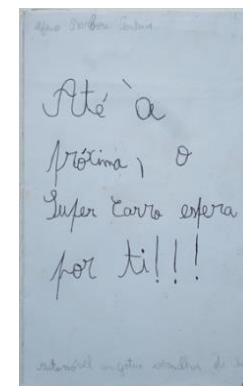 Até à
próxima, o
Super Carro espera
por ti!!!